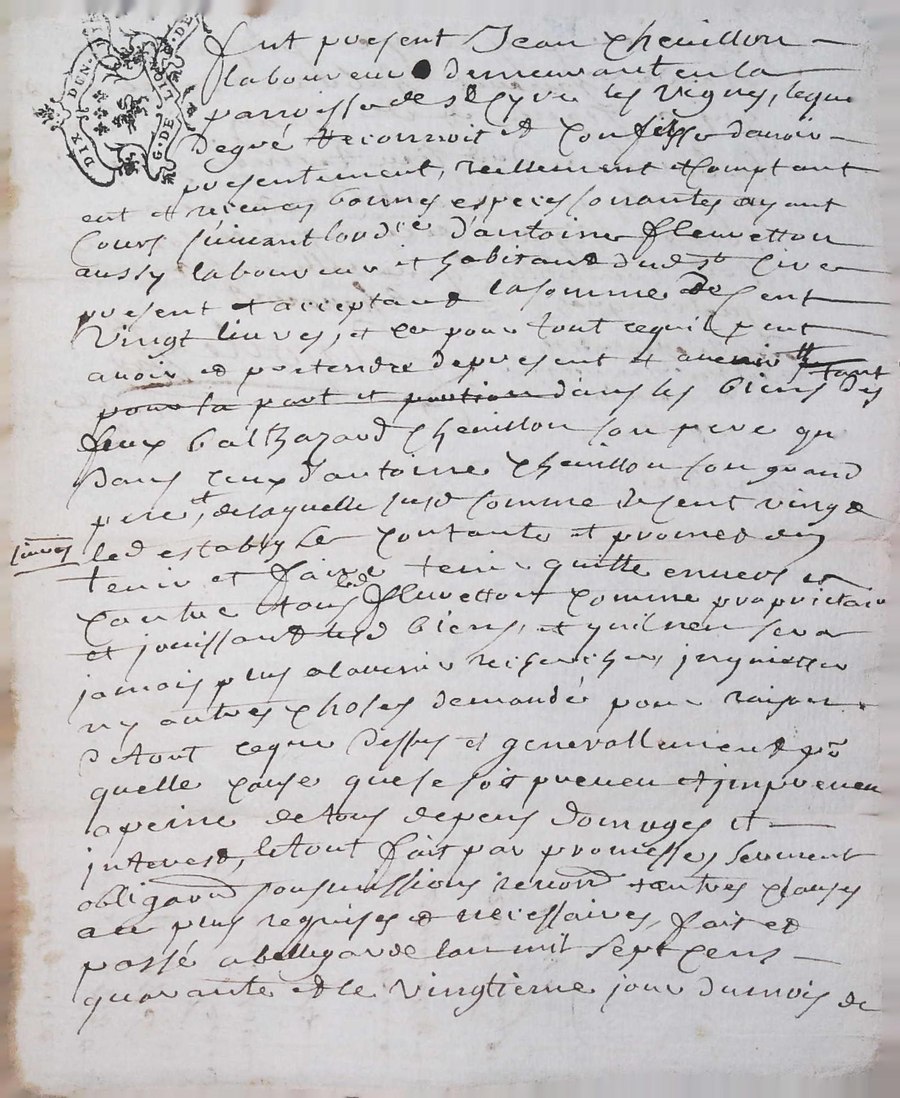 DIX DEN. G. DE LION
fut present Jean Chevillon
laboureur demeurant en la
parroisse de st Cyre les vignes, lequel
de gré reconnoit et confesse d'avoir
presentement, reellement et comptant
eut et receu en bonnes especes sonnantes ayant
cours suivant lordre d'antoine fleuretton
aussy laboureur et habitant dud st Cire
present et acceptant la somme de cent
vingt livres, et ce pour tout ce quil peut
avoir et pretendre de present et avenir tant
pour la part et portion dans les biens des
feux balthazard Chevillon son pere qu
dans ceux d'antoine Chevillon son grand
pere, de laquelle susd somme de cent vingt
livres
led estably se contante et promet en
tenir et faire tenir quitte envers et
contre tous led fleuretton comme proprietaire
et jouissant desd biens, et quil nen sera
jamais plus alavenir recherché, inquietté
ny autres choses demandée pour raison
de tout ce que dessus et generallement pr
quelle cause que se soit preveu et impreveu
a peine de tous depens domages et
interest, le tout fait par promesses, serment
obligaon soumissions renonon et autres clauses
au plus requises et necessaires, fait et
passé a bellegarde lan mil sept cens
quarante et le vingtieme jour du mois de